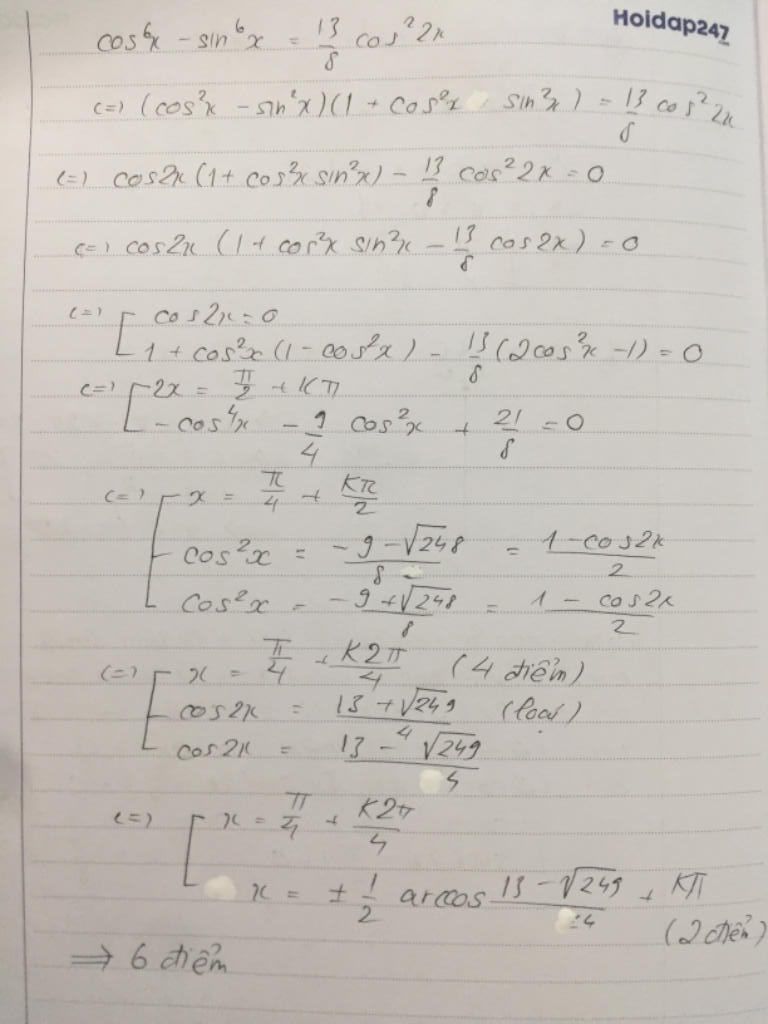 Hoidap247
cos⁶x - sin⁶x = 13/8 cos²2x
<=> (cos²x - sin²x)(1 + cos²x sin²x) = 13/8 cos²2x
<=> cos2x(1 + cos²x sin²x) - 13/8 cos²2x = 0
<=> cos2x (1 + cos²x sin²x - 13/8 cos2x) = 0
<=> [ cos2x = 0
1 + cos²x (1 - cos²x) - 13/8 (2cos²x - 1) = 0
<=> [ 2x = π/2 + Kπ
- cos⁴x - 9/4 cos²x + 21/8 = 0
<=> [ x = π/4 + Kπ/2
cos²x = (-9 - √248)/8 = (1 - cos2x)/2
cos²x = (-9 + √248)/8 = (1 - cos2x)/2
<=> [ x = π/4 + K2π/4 (4 điểm)
cos2x = (13 + √249)/4 (loại)
cos2x = (13 - √249)/4
<=> [ x = π/4 + K2π/4
x = ± 1/2 arccos (13 - √249)/4 + Kπ
(2 điểm)
=> 6 điểm